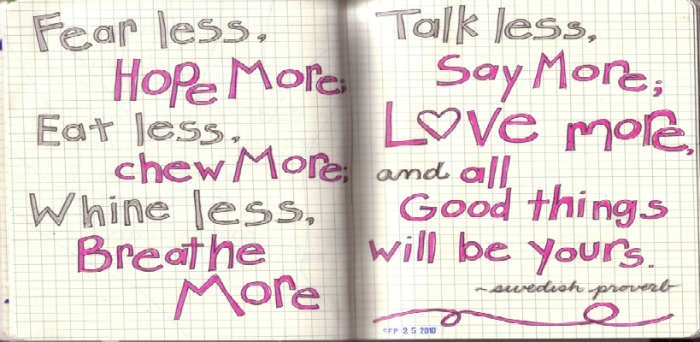 Fear less,
Hope More;
Eat less,
chew More;
Whine less,
Breathe
More
Talk less,
Say More;
Love more,
and all
Good things
will be yours.
~swedish proverb
SEP 25 2010